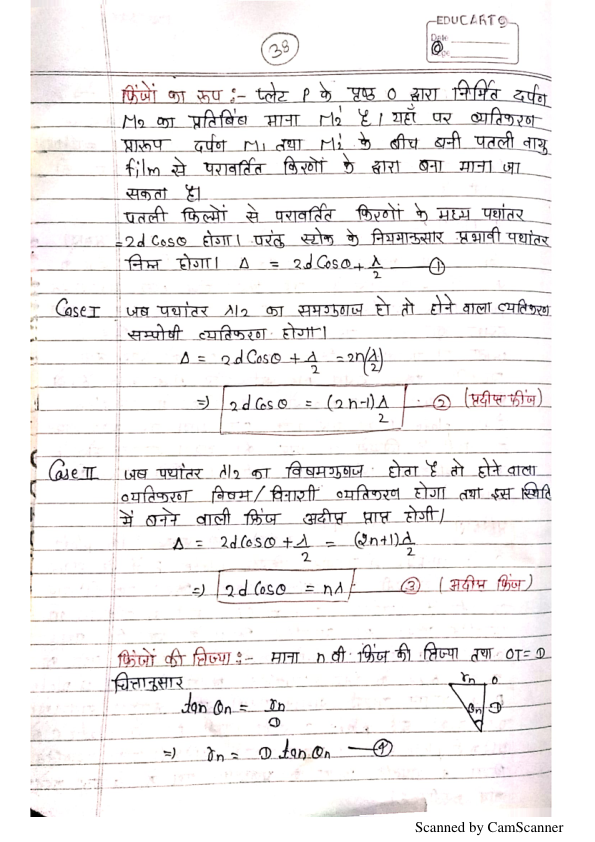 38
EDUCART
Date
फिंजों का रूप :- प्लेट P के पृष्ठ O द्वारा निर्मित दर्पण
M2 का प्रतिबिंब माना M2' है। यहाँ पर व्यतिकरण
प्रारूप दर्पण M1 तथा M2' के बीच बनी पतली वायु
film से परावर्तित किरणों के द्वारा बना माना जा
सकता है।
पतली फिल्मों से परावर्तित किरणों के मध्य पथांतर
=2d Cosθ होगा। परंतु स्टोक के नियमानुसार प्रभावी पथांतर
निम्न होगा। Δ = 2d Cosθ + λ/2 — ①
Case I जब पथांतर λ/2 का समगुणज हो तो होने वाला व्यतिकरण
सम्पोषी व्यतिकरण होगा।
Δ = 2d Cosθ + λ/2 = 2n(λ/2)
⇒ 2d Cosθ = (2n-1) λ/2 — ② (प्रदीप्त फ्रींज)
Case II जब पथांतर λ/2 का विषमगुणज होता है तो होने वाला
व्यतिकरण विषम/विनाशी व्यतिकरण होगा तथा इस स्थिति
में बनने वाली फ्रिंज अदीप्त प्राप्त होगी।
Δ = 2d Cosθ + λ/2 = (2n+1) λ/2
⇒ 2d Cosθ = nλ — ③ (अदीप्त फ्रिंज)
फ्रिंजों की त्रिज्या :- माना n वी फ्रिंज की त्रिज्या तथा OT = D
चित्तानुसार
rn O
θn D
tan θn = rn/D
⇒ rn = D tan θn — ④
Scanned by CamScanner